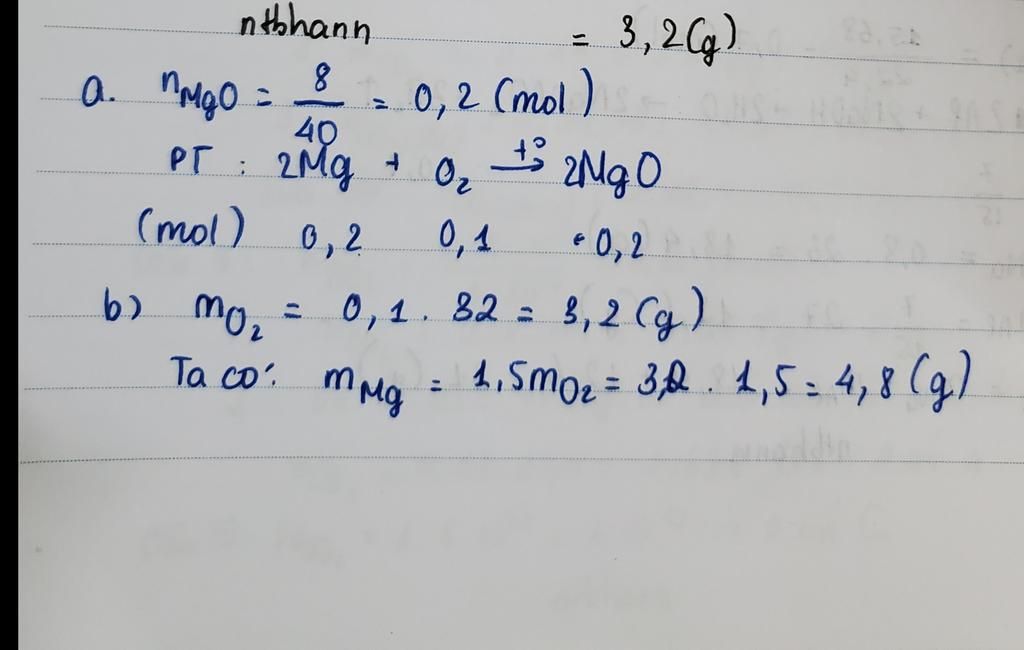 ntbhann = 3,2(g)
a. nMgO = 8/40 = 0,2 (mol)
PT : 2Mg + O₂ →(t°) 2MgO
(mol) 0,2 0,1 0,2
b) mO₂ = 0,1 . 32 = 3,2 (g)
Ta có: mMg = 1,5mO₂ = 3,2 . 1,5 = 4,8 (g)